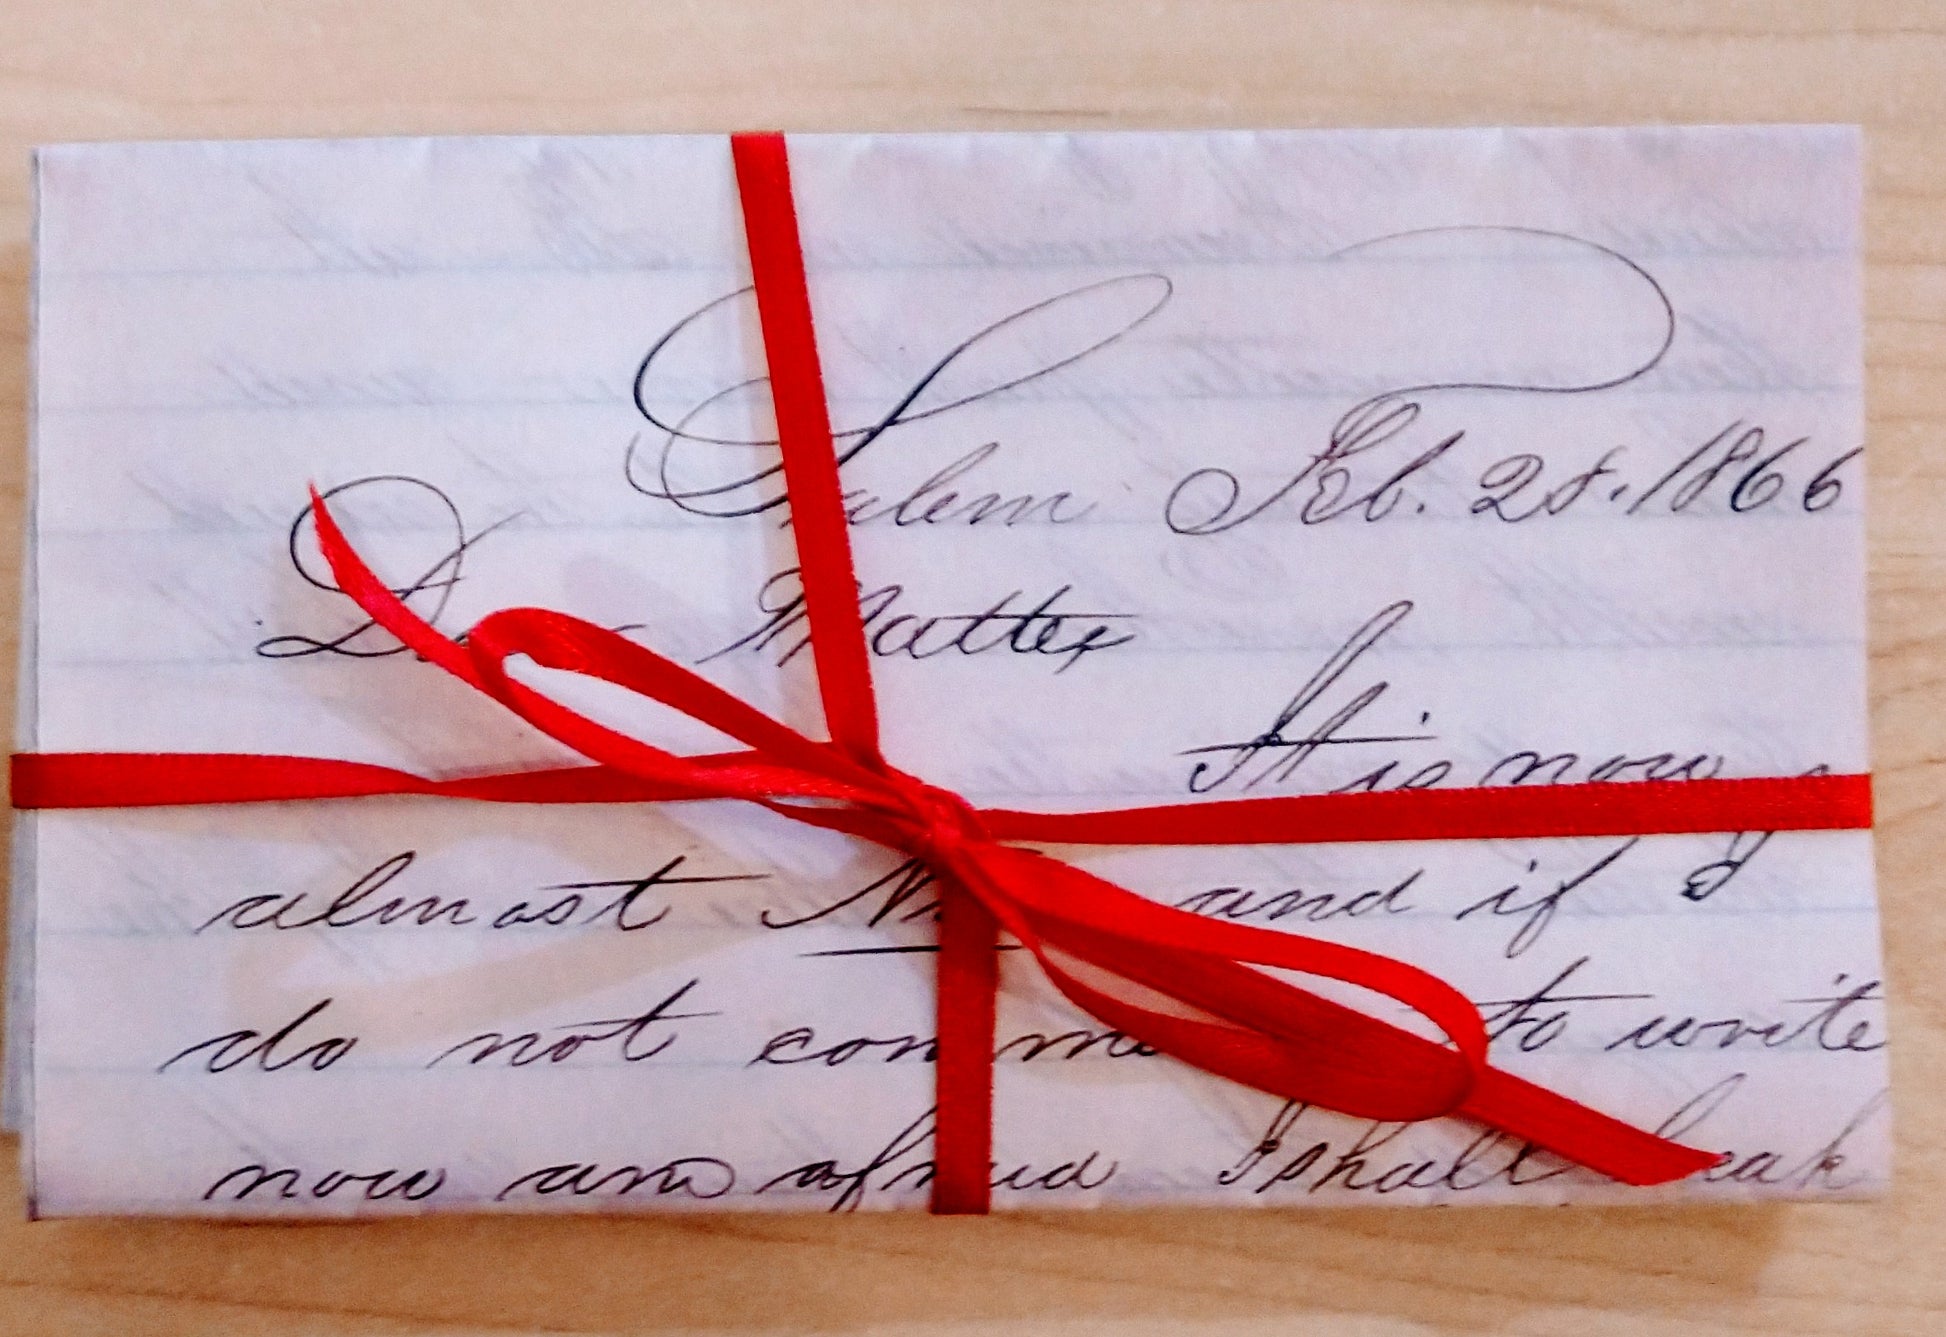 Salem Feb. 28. 1866
Dear
It is now
almost and if
do not commence to write
now am afraid I shall